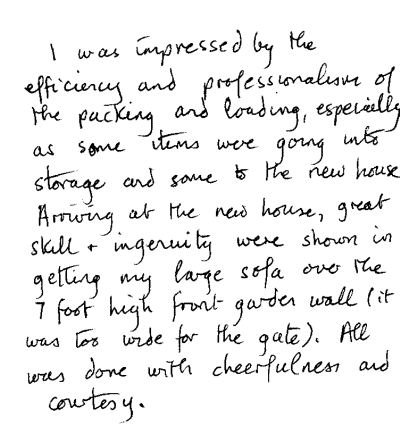 I was impressed by the
efficiency and professionalism of
the packing and loading, especially
as some items were going into
storage and some to the new house
Arriving at the new house, great
skill + ingenuity were shown in
getting my large sofa over the
7 foot high front garden wall (it
was too wide for the gate). All
was done with cheerfulness and
courtesy.